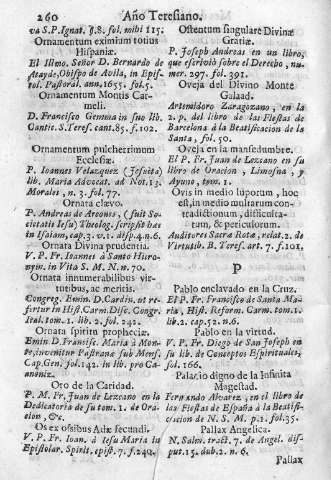 260 Año Teresiano.
va S.P.Ignat. f.8. fol. mihi 115.
Ornamentum eximium totius
Hispaniæ.
El Illmo. Señor D. Bernardo de
Atayde, Obispo de Avila, in Epis-
tol. Pastoral. ann. 1655. fol. 5.
Ornamentum Montis Car-
meli.
D. Francisco Gemma in suo lib.
Cantic. S. Teres. cant. 85. f. 102.
Ornamentum pulcherrimum
Ecclesiæ.
P. Ioannes Velazquez (Jesuita)
lib. Maria Advocat. ad Not. 13.
Morales, n. 3. fol. 77.
Ornata clævo.
P. Andreas de Arcones, (fuit So-
cietatis Iesu) Theolog. scripsit hæc
in Isaiam, cap. 3. v. 1. disp. 4. n. 6.
Ornata Divina prudentia.
V. P. Fr. Ioannes à Santo Hiero-
nym. in Vita S. M. N. n. 70.
Ornata innumerabilibus vir-
tutibus, ac meritis.
Congreg. Emin. D. Cardin. ut re-
fertur in Hist. Carm. Disc. Congr.
Ital. tom. 1. lib. 2. fol. 241.
Ornata spiritu prophetiæ.
Emin. D. Francisc. Maria à Mon-
te, invenitur Pastrana sub Mens.
Cap. Gen. fol. 142. in lib. pro Ca-
noniz.
Oro de la Caridad.
P. M. Fr. Juan de Lezcano en la
Dedicatoria de su tom. 1. de Ora-
cion, &c.
Os ex ossibus Adæ secundi.
V. P. Fr. Ioan. à Iesu Maria in
Epistolar. Spirit. epist. 7. f. 240.
Ostentum singulare Divinæ
Gratiæ.
P. Joseph Andreas en un libro,
que escrivió sobre el Derecho, nu-
mer. 297. fol. 391.
Oveja del Divino Monte
Galaad.
Artemidoro Zaragozano, en la
2. p. del lib. de las Fiestas de
Barcelona à la Beatificacion de la
Santa, fol. 50.
Oveja en la mansedumbre.
El P. Fr. Juan de Lezcano en su
libro de Oracion, Limosna, y
Ayuno, tom. 1.
Ovis in medio luporum, hoc
est, in medio multarum con-
tradictionum, difficulta-
tum, & periculorum.
Auditores Sacra Rota, relat. 2. de
Virtutib. B. Teres. art. 7. f. 101.
P
Pablo enclavado en la Cruz.
El P. Fr. Francisco de Santa Ma-
ria, Hist. Reform. Carm. tom. 1.
lib. 2. cap. 52. n. 6.
Pablo en la virtud.
V. P. Fr. Diego de San Joseph en
su lib. de Conceptos Espirituales,
fol. 166.
Palacio digno de la Infinita
Magestad.
Fernando Alvarez, en el libro de
las Fiestas de España à la Beatifi-
cacion de N. S. M. p. 1. fol. 35.
Pallax Angelica.
N. Salm. tract. 7. de Angel. dis-
put. 15. dub. 2. n. 6.
Pallax